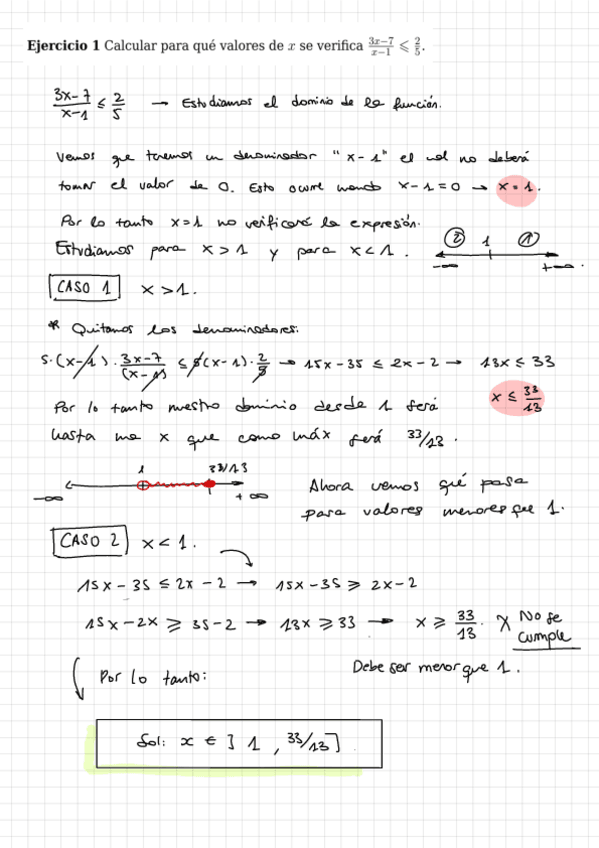 Ejercicio 1 Calcular para qué valores de x se verifica (3x−7)/(x−1) ⩽ 2/5.
(3x−7)/(x−1) ≤ 2/5 → Estudiamos el dominio de la función.
Vemos que tenemos un denominador "x−1" el cual no deberá
tomar el valor de 0. Esto ocurre cuando x−1=0 → x=1.
Por lo tanto x=1 no verificará la expresión.
Estudiamos para x>1 y para x<1.
② 1 ①
−∞ +∞.
CASO 1 x>1.
* Quitamos los denominadores:
5·(x−1)·(3x−7)/(x−1) ≤ 5(x−1)·2/5 → 15x−35 ≤ 2x−2 → 13x ≤ 33
x ≤ 33/13
Por lo tanto nuestro dominio desde 1 será
hasta una x que como máx será 33/13.
1 33/13
−∞ +∞
Ahora vemos qué pasa
para valores menores que 1.
CASO 2 x<1.
15x−35 ≤ 2x−2 → 15x−35 ⩾ 2x−2
15x−2x ⩾ 35−2 → 13x ⩾ 33 → x ⩾ 33/13. X No se
cumple
Debe ser menor que 1.
Por lo tanto:
Sol: x ∈ ] 1 , 33/13]